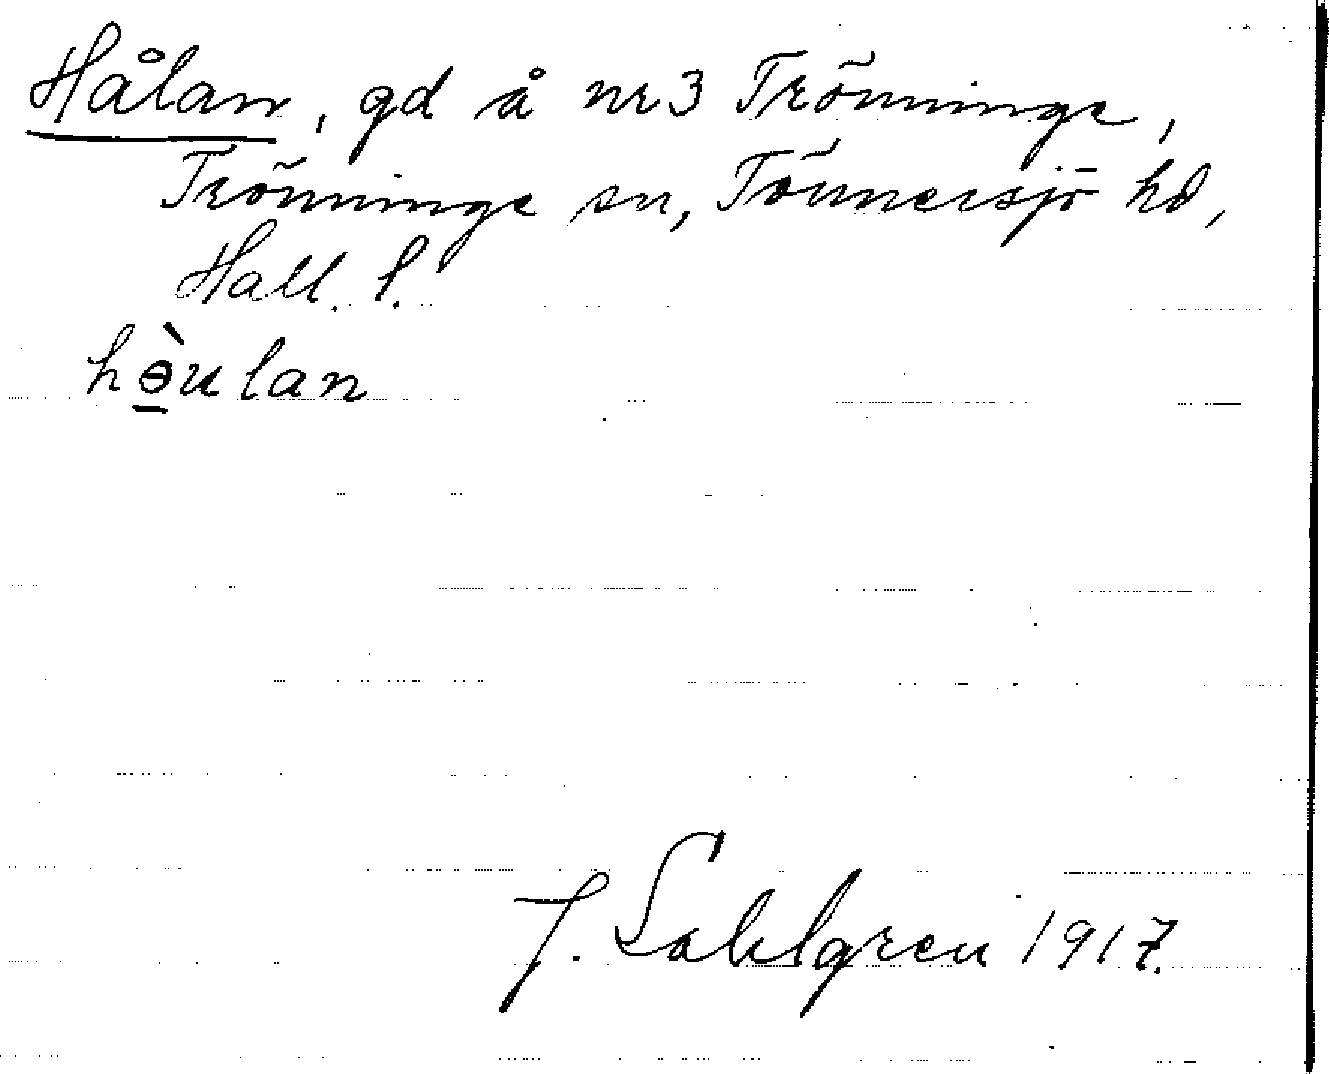 Hålan, gd å nr 3 Trönninge,
Trönninge sn, Tönnersjö hd,
Hall. l.
hɵ̠̀ulan
J. Sahlgren 1917.